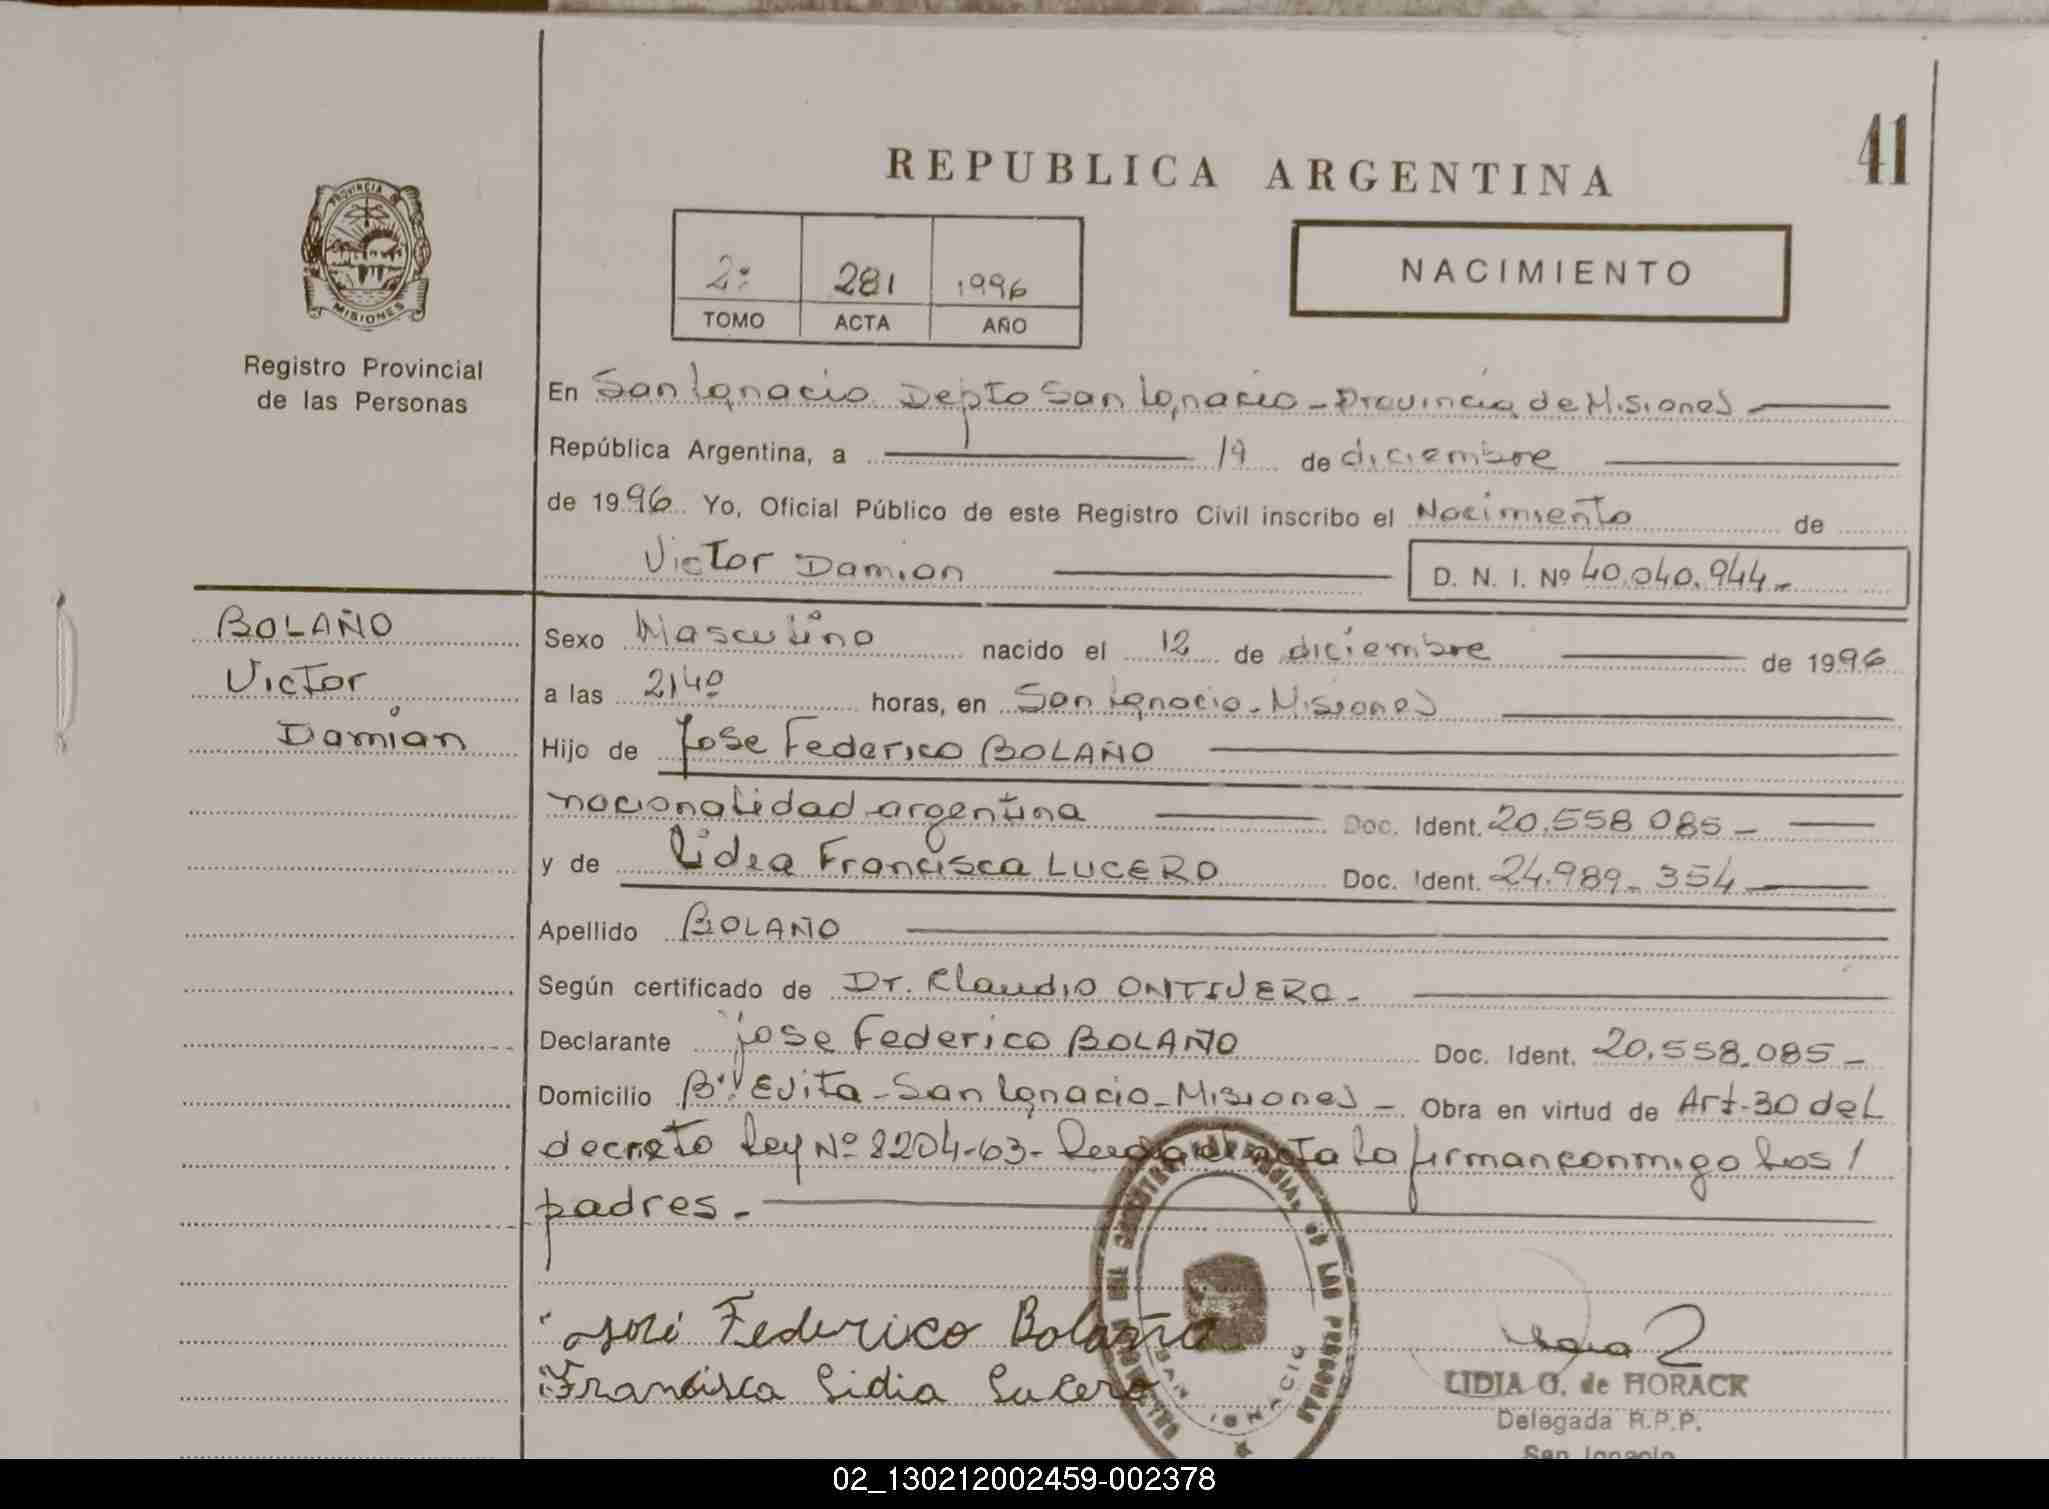 41
REPUBLICA ARGENTINA
PROVINCIA
MISIONES
Registro Provincial
de las Personas
2º 281 1996
TOMO ACTA AÑO
NACIMIENTO
En San Ignacio Depto San Ignacio - Provincia de Misiones
República Argentina, a 19 de diciembre
de 1996 Yo, Oficial Público de este Registro Civil inscribo el Nacimiento de
Victor Damian D. N. I. Nº 40.040.944-
BOLAÑO
Victor
Damian
Sexo Masculino nacido el 12 de diciembre de 1996
a las 2140 horas, en San Ignacio - Misiones
Hijo de Jose Federico BOLAÑO
nacionalidad argentina Doc. Ident. 20.558.085-
y de Lidea Francisca LUCERO Doc. Ident. 24.989.354
Apellido BOLAÑO
Según certificado de Dr. Claudio ONTIVERO-
Declarante Jose Federico BOLAÑO Doc. Ident. 20.558.085-
Domicilio Bº Evita - San Ignacio - Misiones - Obra en virtud de Art-30 del
decreto Ley Nº 8204-63- Leeda el acta la firman conmigo los
padres.-
José Federico Bolaño
Francisca Lidia Lucero
SAN IGNACIO
LIDIA G. de HORACK
Delegada R.P.P.
San Ignacio
02_130212002459-002378